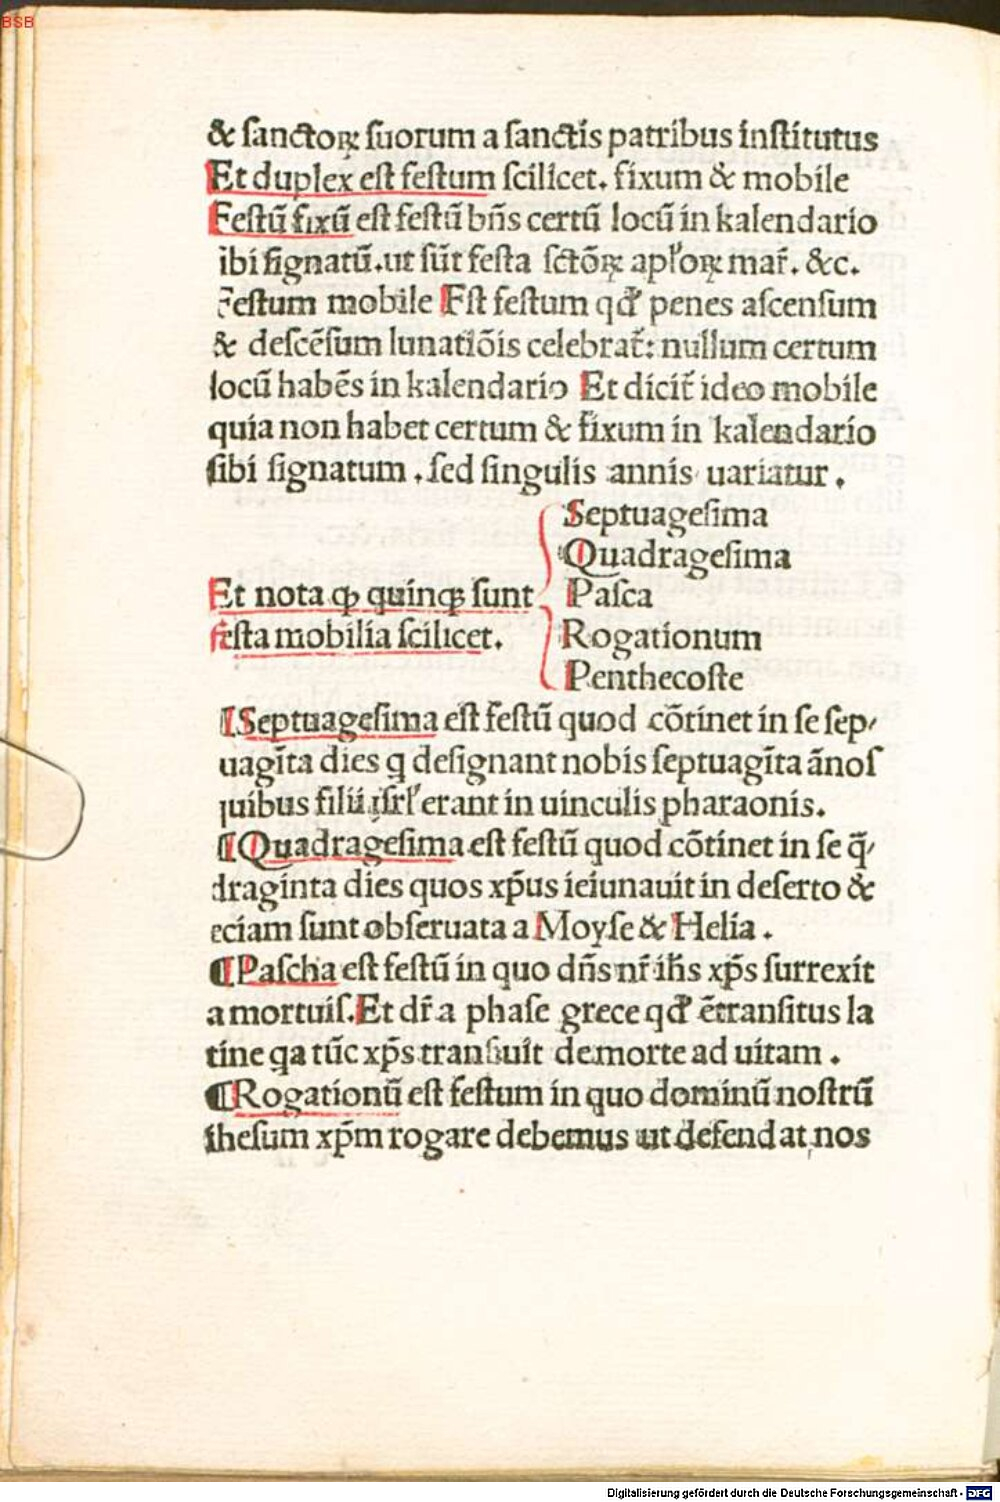 BSB
& ſanctoꝝ ſuorum a ſanctis patribus inſtitutus
Et duplex eſt feſtum ſcilicet. fixum & mobile
Feſtū fixū eſt feſtū bn̄s certū locū in kalendario
ibi ſignatū. ut ſūt feſta ſctōꝝ apłoꝝ mar̄. &c.
Feſtum mobile Eſt feſtum qđ penes aſcenſum
& deſcēſum lunatiōis celebrat̄: nullum certum
locū habēs in kalendario Et dicit̄ ideo mobile
quia non habet certum & fixum in kalendario
ſibi ſignatum . ſed ſingulis annis uariatur .
Septuageſima
Quadrageſima
Et nota ꝙ quinqꝫ ſunt Paſca
feſta mobilia ſcilicet. Rogationum
Penthecoſte
¶Septuageſima eſt feſtū quod cōtinet in ſe ſep⸗
uagīta dies q deſignant nobis ſeptuagīta ānoſ
quibus filii iſrł erant in uinculis pharaonis.
¶Quadrageſima eſt feſtū quod cōtinet in ſe q̄⸗
draginta dies quos xp̄us ieiunauit in deſerto &
eciam ſunt obſeruata a Moyſe & Helia .
¶Paſcha eſt feſtū in quo dn̄s nr̄ ih̄s xp̄s ſurrexit
a mortuiſ. Et dr̄ a phaſe grece qđ ē tranſitus la
tine qa tūc xp̄s tranſiuit de morte ad uitam .
¶Rogationū eſt feſtum in quo dominū noſtrū
iheſum xp̄m rogare debemus ut defendat nos
Digitalisierung gefördert durch die Deutsche Forschungsgemeinschaft - DFG